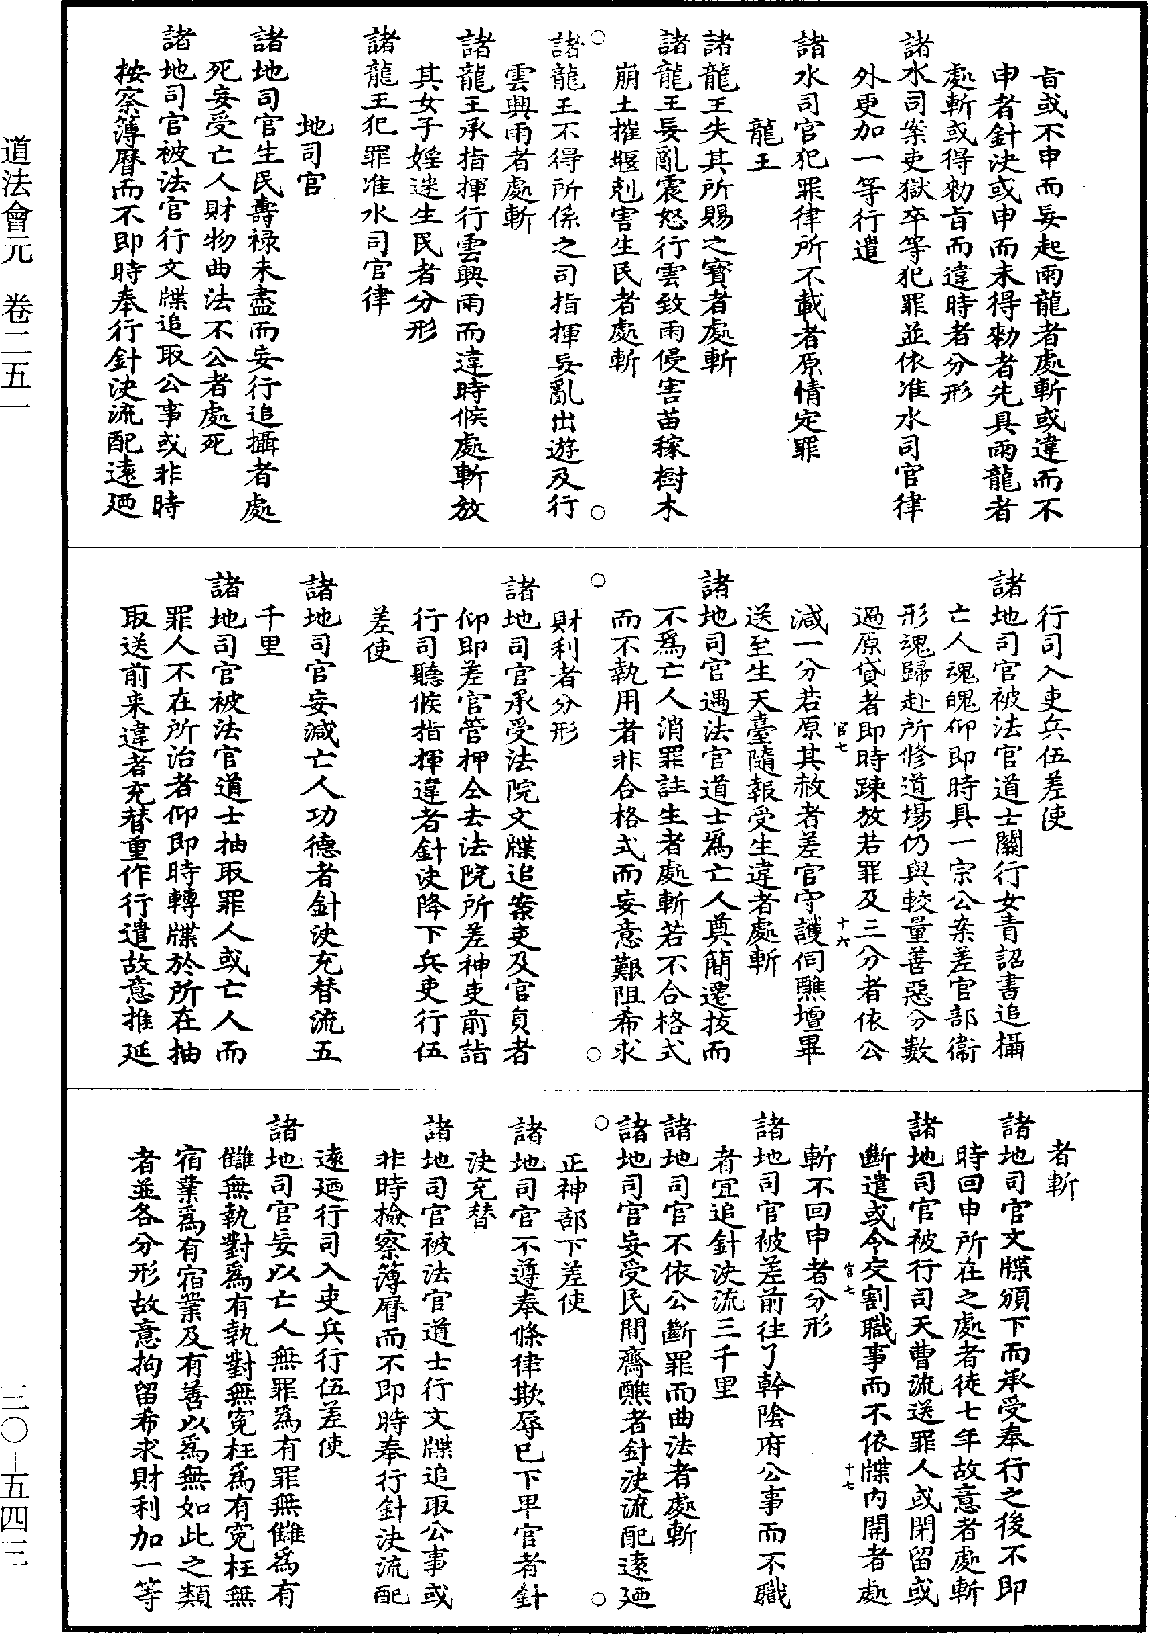 旨或不申而妄起雨龍者處斬或違而不
申者針決或申而未得勑者先具雨龍者
處斬或得勑旨而違時者分形
諸水司案吏獄卒等犯罪並依准水司官律
外更加一等行遣
諸水司官犯罪律所不載者原情定罪
龍王
諸龍王失其所賜之寶者處斬
諸龍王妄亂震怒行雲致雨侵害苗稼樹木
崩土摧堰剋害生民者處斬
諸龍王不得所係之司指揮妄亂出遊及行
雲興雨者處斬
諸龍王承指揮行雲興雨而違時候處斬放
其女子婬迷生民者分形
諸龍王犯罪准水司官律
地司官
諸地司官生民壽祿未盡而妄行追攝者處
死妄受亡人財物曲法不公者處死
諸地司官被法官行文牒追取公事或非時
按察簿曆而不即時奉行針決流配遠廼
行司入吏兵伍差使
諸地司官被法官道士關行女青詔書追攝
亡人魂魄仰即時具一宗公案差官部衞
形魂歸赴所修道場仍與較量善惡分數
過原貸者即時踈放若罪及三分者依公
減一分若原其赦者差官守護伺醮壇畢
送至生天臺隨報受生違者處斬
諸地司官遇法官道士爲亡人奠簡遷拔而
不爲亡人消罪註生者處斬若不合格式
而不執用者非合格式而妄意難阻希求
財利者分形
諸地司官承受法院文牒追案吏及官員者
仰即差官管押仝去法院所差神吏前詣
行司聽候指揮違者針決降下兵吏行伍
差使
諸地司官妄減亡人功德者針決充替流五
千里
諸地司官被法官道士抽取罪人或亡人而
罪人不在所治者仰即時轉牒於所在抽
取送前來違者充替重作行遣故意推延
者斬
諸地司官文牒頒下而承受奉行之後不即
時回申所在之處者徒七年故意者處斬
諸地司官被行司天曹流送罪人或閉留或
斷遣或令交割職事而不依牒內開者處
斬不回申者分形
諸地司官被差前往了幹陰府公事而不職
者冝追針決流三千里
諸地司官不依公斷罪而曲法者處斬
諸地司官妄受民間齋醮者針決流配遠廼
正神部下差使
諸地司官不遵奉條律欺辱已下卑官者針
決充替
諸地司官被法官道士行文牒追取公事或
非時檢察簿曆而不即時奉行針決流配
遠廼行司入吏兵行伍差使
諸地司官妄以亡人無罪爲有罪無讎爲有
讎無執對爲有執對無寃枉爲有寃枉無
宿業爲有宿業及有善以爲無如此之類
者並各分形故意拘留希求財利加一等
官七
十六
官七
十七
道法會元 卷二五一
三〇-五四三